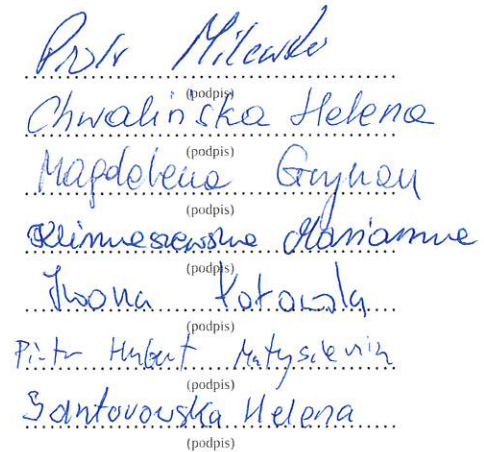 Piotr Milewski
(podpis)
Chwalińska Helena
(podpis)
Magdalena
(podpis)
Klimaszewska Marianna
(podpis)
Iwona
(podpis)
Piotr Hubert Matysiewicz
(podpis)
Santorowska Helena
(podpis)